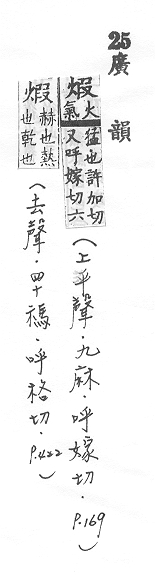 25廣韻
煆火氣猛也許加切又呼嫁切六
(上平聲.九麻.呼嫁切.P.169)
煆赫也熱也乾也
(去聲.四十禡.呼格切.P.422)